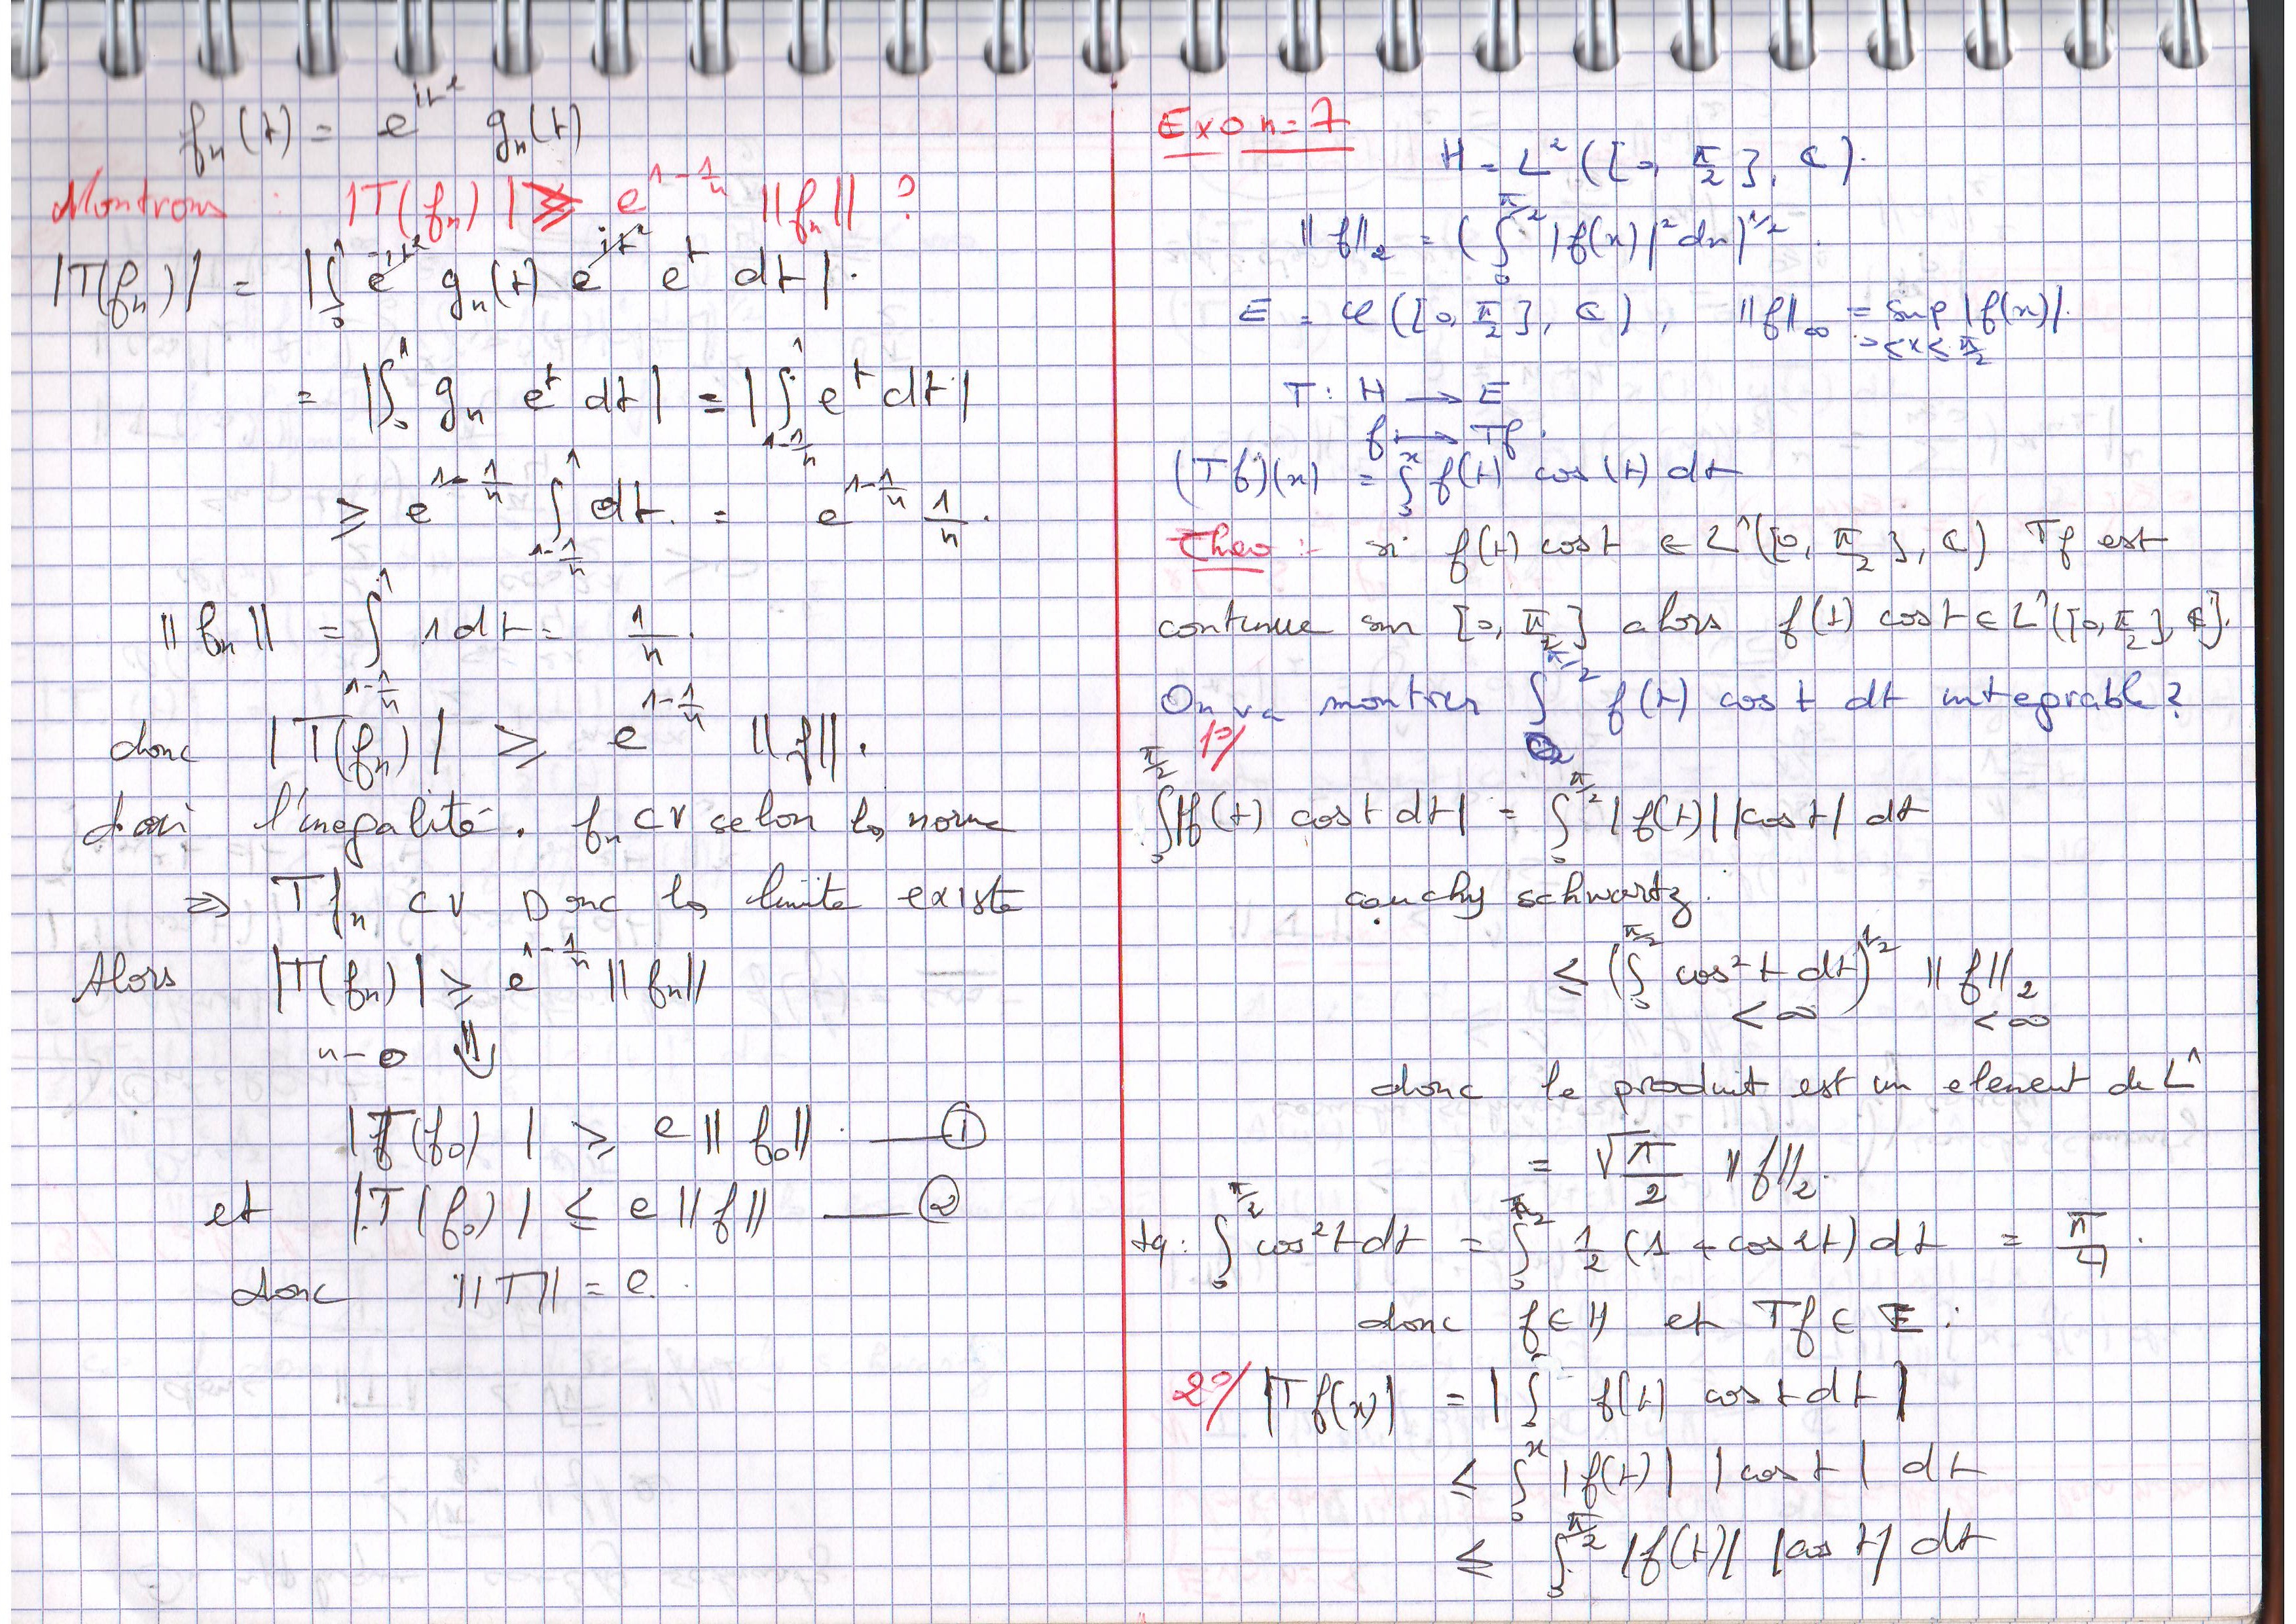 fₙ(t) = e^{it²} gₙ(t)
Montrons : |T(fₙ)| ≥ e^{1-1/n} ||fₙ|| ?
|T(fₙ)| = |∫₀¹ e^{-it²} gₙ(t) e^{it²} e^t dt|.
= |∫₀¹ gₙ e^t dt| = |∫_{1-1/n}^1 e^t dt|
≥ e^{1-1/n} ∫_{1-1/n}^1 dt. = e^{1-1/n} 1/n.
||fₙ|| = ∫_{1-1/n}^1 1 dt = 1/n.
donc |T(fₙ)| ≥ e^{1-1/n} ||f||.
l'inegalité. fₙ CV selon la norme
⇒ Tfₙ CV Donc la limite existe
Alors |T(fₙ)| ≥ e^{1-1/n} ||fₙ||
n→0 ⇓
|T(f₀)| ≥ e ||f₀||. —①
et |T(f₀)| ≤ e ||f|| —②
donc ||T|| = e.
Exo n=7
H = L²([0, π/2], ℂ).
||f||₂ = (∫₀^{π/2} |f(x)|² dx)^{1/2}.
E = 𝒞([0, π/2], ℂ), ||f||∞ = sup_{0≤x≤π/2} |f(x)|.
T : H → E
f ↦ Tf.
(Tf)(x) = ∫₀^x f(t) cos(t) dt
Theo :- si f(t) cos t ∈ L¹([0, π/2], ℂ) Tf est
continue sur [0, π/2] alors f(t) cos t ∈ L¹([0, π/2], ℂ].
On va montrer ∫₀^{π/2} f(t) cos t dt integrable ?
1°/
∫₀^{π/2} |f(t) cos t dt| = ∫₀^{π/2} |f(t)| |cos t| dt
cauchy schwartz :
≤ (∫₀^{π/2} cos² t dt)^{1/2} ||f||₂
< ∞ < ∞
donc le produit est un element de L¹
= √π/2 ||f||₂.
tq : ∫₀^{π/2} cos² t dt = ∫₀^{π/2} 1/2 (1 + cos 2t) dt = π/4.
donc f ∈ H et Tf ∈ E :
2°/ |Tf(x)| = |∫ f(t) cos t dt|
≤ ∫₀^x |f(t)| |cos t| dt
≤ ∫₀^{π/2} |f(t)| |cos t| dt